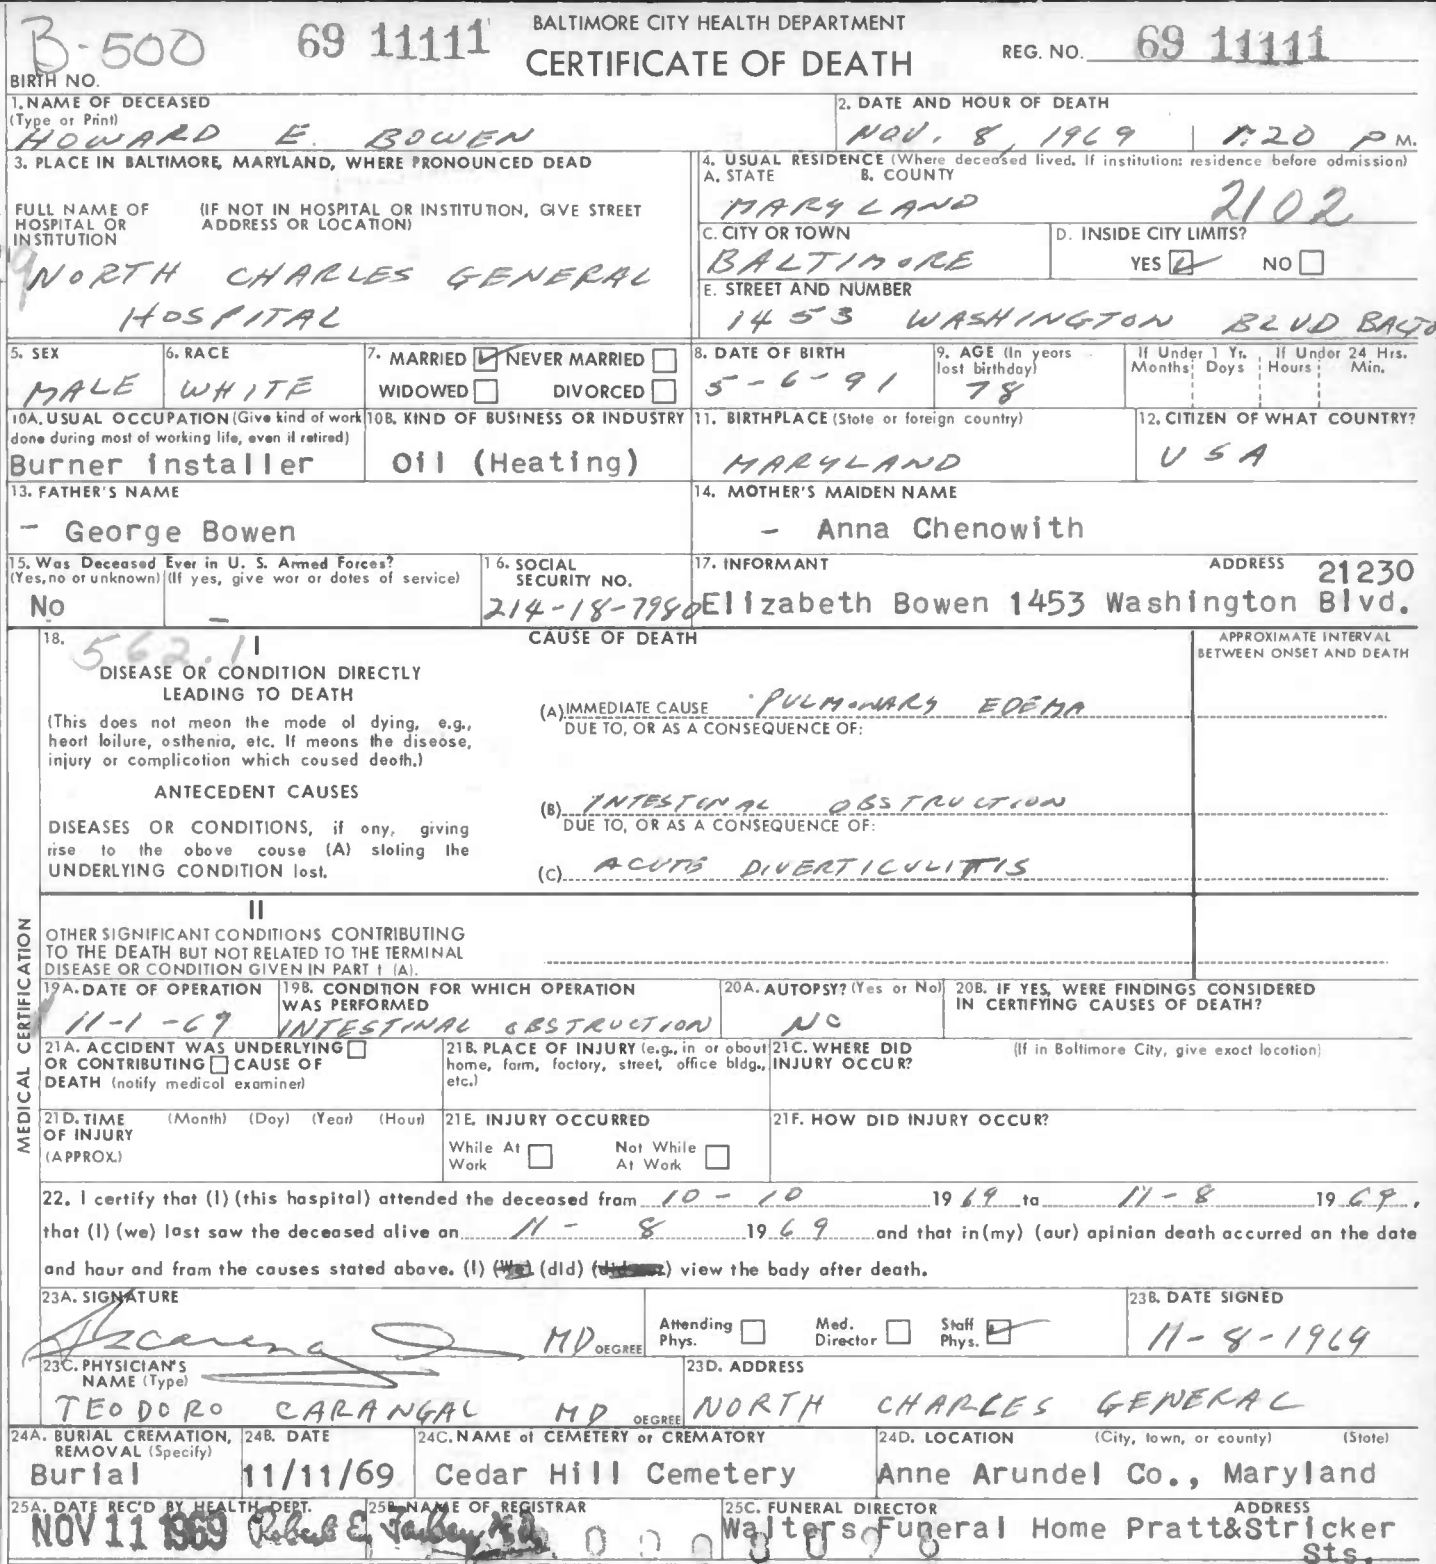 BALTIMORE CITY HEALTH DEPARTMENT
CERTIFICATE OF DEATH
B-500
69 11111
REG. NO. 69 11111
BIRTH NO.
1. NAME OF DECEASED
(Type or Print)
HOWARD E. BOWEN
2. DATE AND HOUR OF DEATH
NOV. 8, 1969 1:20 P M.
3. PLACE IN BALTIMORE, MARYLAND, WHERE PRONOUNCED DEAD
FULL NAME OF HOSPITAL OR INSTITUTION
(IF NOT IN HOSPITAL OR INSTITUTION, GIVE STREET ADDRESS OR LOCATION)
NORTH CHARLES GENERAL
HOSPITAL
4. USUAL RESIDENCE (Where deceased lived. If institution: residence before admission)
A. STATE B. COUNTY
MARYLAND 2102
C. CITY OR TOWN
BALTIMORE
D. INSIDE CITY LIMITS?
YES NO
E. STREET AND NUMBER
1453 WASHINGTON BLVD BALTO
5. SEX
MALE
6. RACE
WHITE
7. MARRIED NEVER MARRIED
WIDOWED DIVORCED
8. DATE OF BIRTH
5-6-91
9. AGE (In years lost birthday)
78
If Under 1 Yr. Months Days
If Under 24 Hrs. Hours Min.
10A. USUAL OCCUPATION (Give kind of work done during most of working life, even if retired)
Burner installer
10B. KIND OF BUSINESS OR INDUSTRY
Oil (Heating)
11. BIRTHPLACE (State or foreign country)
MARYLAND
12. CITIZEN OF WHAT COUNTRY?
USA
13. FATHER'S NAME
- George Bowen
14. MOTHER'S MAIDEN NAME
- Anna Chenowith
15. Was Deceased Ever in U. S. Armed Forces?
(Yes, no or unknown) (If yes, give wor or dotes of service)
No -
16. SOCIAL SECURITY NO.
214-18-7980
17. INFORMANT ADDRESS
21230
Elizabeth Bowen 1453 Washington Blvd.
MEDICAL CERTIFICATION
18. 562.1
CAUSE OF DEATH
APPROXIMATE INTERVAL BETWEEN ONSET AND DEATH
I
DISEASE OR CONDITION DIRECTLY
LEADING TO DEATH
(This does not meon the mode ol dying, e.g.,
heort loilure, osthenia, etc. If meons the diseose,
injury or complicotion which coused deoth.)
(A) IMMEDIATE CAUSE PULMONARY EDEMA
DUE TO, OR AS A CONSEQUENCE OF:
ANTECEDENT CAUSES
DISEASES OR CONDITIONS, if ony, giving
rise to the obove couse (A) sloling lhe
UNDERLYING CONDITION lost.
(B) INTESTINAL OBSTRUCTION
DUE TO, OR AS A CONSEQUENCE OF:
(C) ACUTE DIVERTICULITIS
II
OTHER SIGNIFICANT CONDITIONS CONTRIBUTING
TO THE DEATH BUT NOT RELATED TO THE TERMINAL
DISEASE OR CONDITION GIVEN IN PART I (A).
19A. DATE OF OPERATION
11-1-69
19B. CONDITION FOR WHICH OPERATION WAS PERFORMED
INTESTINAL OBSTRUCTION
20A. AUTOPSY? (Yes or No)
NO
20B. IF YES, WERE FINDINGS CONSIDERED IN CERTIFYING CAUSES OF DEATH?
21A. ACCIDENT WAS UNDERLYING
OR CONTRIBUTING CAUSE OF
DEATH (notify medical exominer)
21B. PLACE OF INJURY (e.g., in or obout
home, form, foctory, street, office bldg.,
etc.)
21C. WHERE DID INJURY OCCUR?
(If in Boltimore City, give exoct locotion)
21D. TIME OF INJURY (APPROX.)
(Month) (Doy) (Yeor) (Hour)
21E. INJURY OCCURRED
While At Work
Not While At Work
21F. HOW DID INJURY OCCUR?
22. I certify that (I) (this haspital) attended the deceased fram 10-10 1969 ta 11-8 1969,
that (I) (we) last saw the deceased alive an 11-8 1969 and that in (my) (aur) apinian death accurred an the date
and haur and fram the causes stated abave. (I) (We) (dId) view the bady after death.
23A. SIGNATURE
MD DEGREE
Attending Phys.
Med. Director
Staff Phys.
23B. DATE SIGNED
11-8-1969
23C. PHYSICIAN'S NAME (Type)
TEODORO CARANGAL MD DEGREE
23D. ADDRESS
NORTH CHARLES GENERAL
24A. BURIAL CREMATION, REMOVAL (Specify)
Burial
24B. DATE
11/11/69
24C. NAME of CEMETERY or CREMATORY
Cedar Hill Cemetery
24D. LOCATION (City, town, or county) (Stote)
Anne Arundel Co., Maryland
25A. DATE REC'D BY HEALTH DEPT.
NOV 11 1969
25B. NAME OF REGISTRAR
Robert E. Farber, M.D.
25C. FUNERAL DIRECTOR ADDRESS
Walters Funeral Home Pratt&Stricker
Sts.